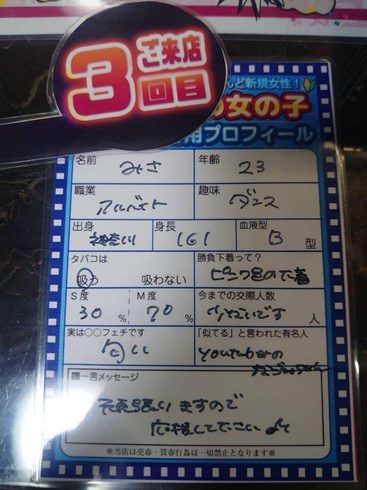 ご来店
3回目
んど新規女性!
の女の子
用プロフィール
名前 みさ 年齢 23
職業 アルバイト 趣味 ダンス
出身 神奈川 身長 161 血液型 B 型
タバコは 勝負下着って?
吸う 吸わない ピンク色の下着
S度 M度 今までの交際人数
30 % 70 % ないしょです 人
実は○○フェチです 「似てる」と言われた有名人
匂い youtuberの
■一言メッセージ
頑張りますので
応援して下さい
※当店は売春・買春行為は一切禁止となります※